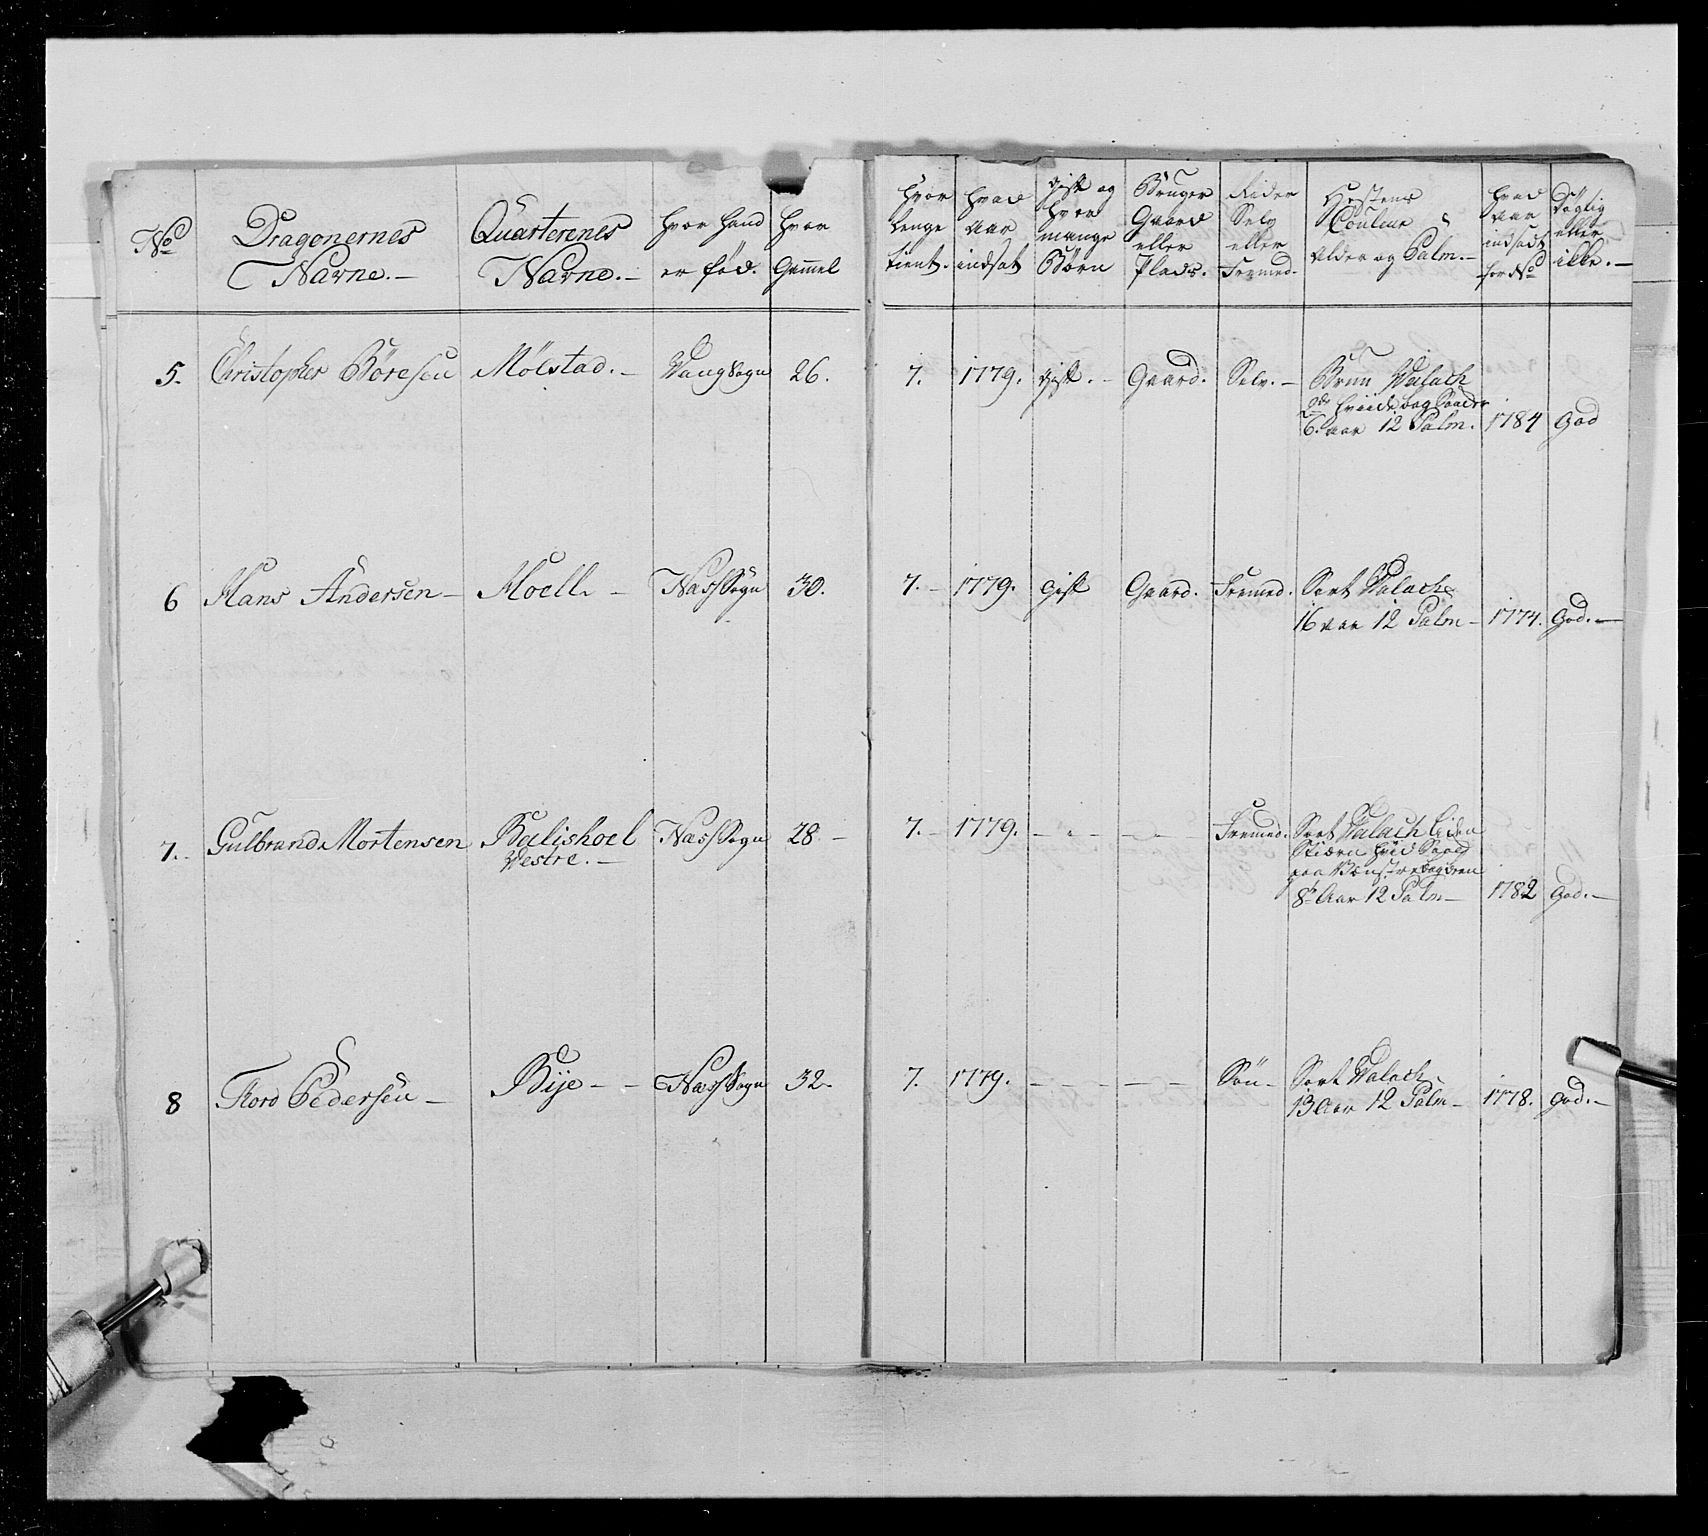 No
Dragonernes
Navne.-
Quarterenes
Navne.-
hvor hand
er fød.
hvor
Gammel
hvor
lenge
tient.
hvad
aar
indsat
gift og
hvor
mange
Børn
Bruger
Gaard
eller
Plads.
Rider
Selv
eller
Fremed.
Hestens
Couleur
Alder og Palm.-
hvad
aar
indsadt
for No
Døglig
eller
ikke.-
5. Christopher Børesen Mølstad.- Vang Sogn 26. 7. 1779. gift.- Gaard. Selv.- Brun Valach
2de hviide bag Saader
6. aar 12 Palm. 1784 God
6 Hans Andersen- Moell. - Nass Sogn 30. 7.- 1779. gift Gaard. Fremed. Sort Valach
16 aar 12 Palm- 1774. God.-
7. Gulbrand Mortensen Balishoel Nass Sogn 28- 7.- 1779. - - - - - Fremed. Sort Valach liden
Vestre.-
Stiern hvid
paa Venstre bagbeen
8t Aar 12 Palm- 1782 God.-
8 Tord Pedersen- Bije - - Næss Sogn 32. 7. 1779. - - - - - Søn- Sort Valach
13 Aar 12 Palm- 1778. God.-